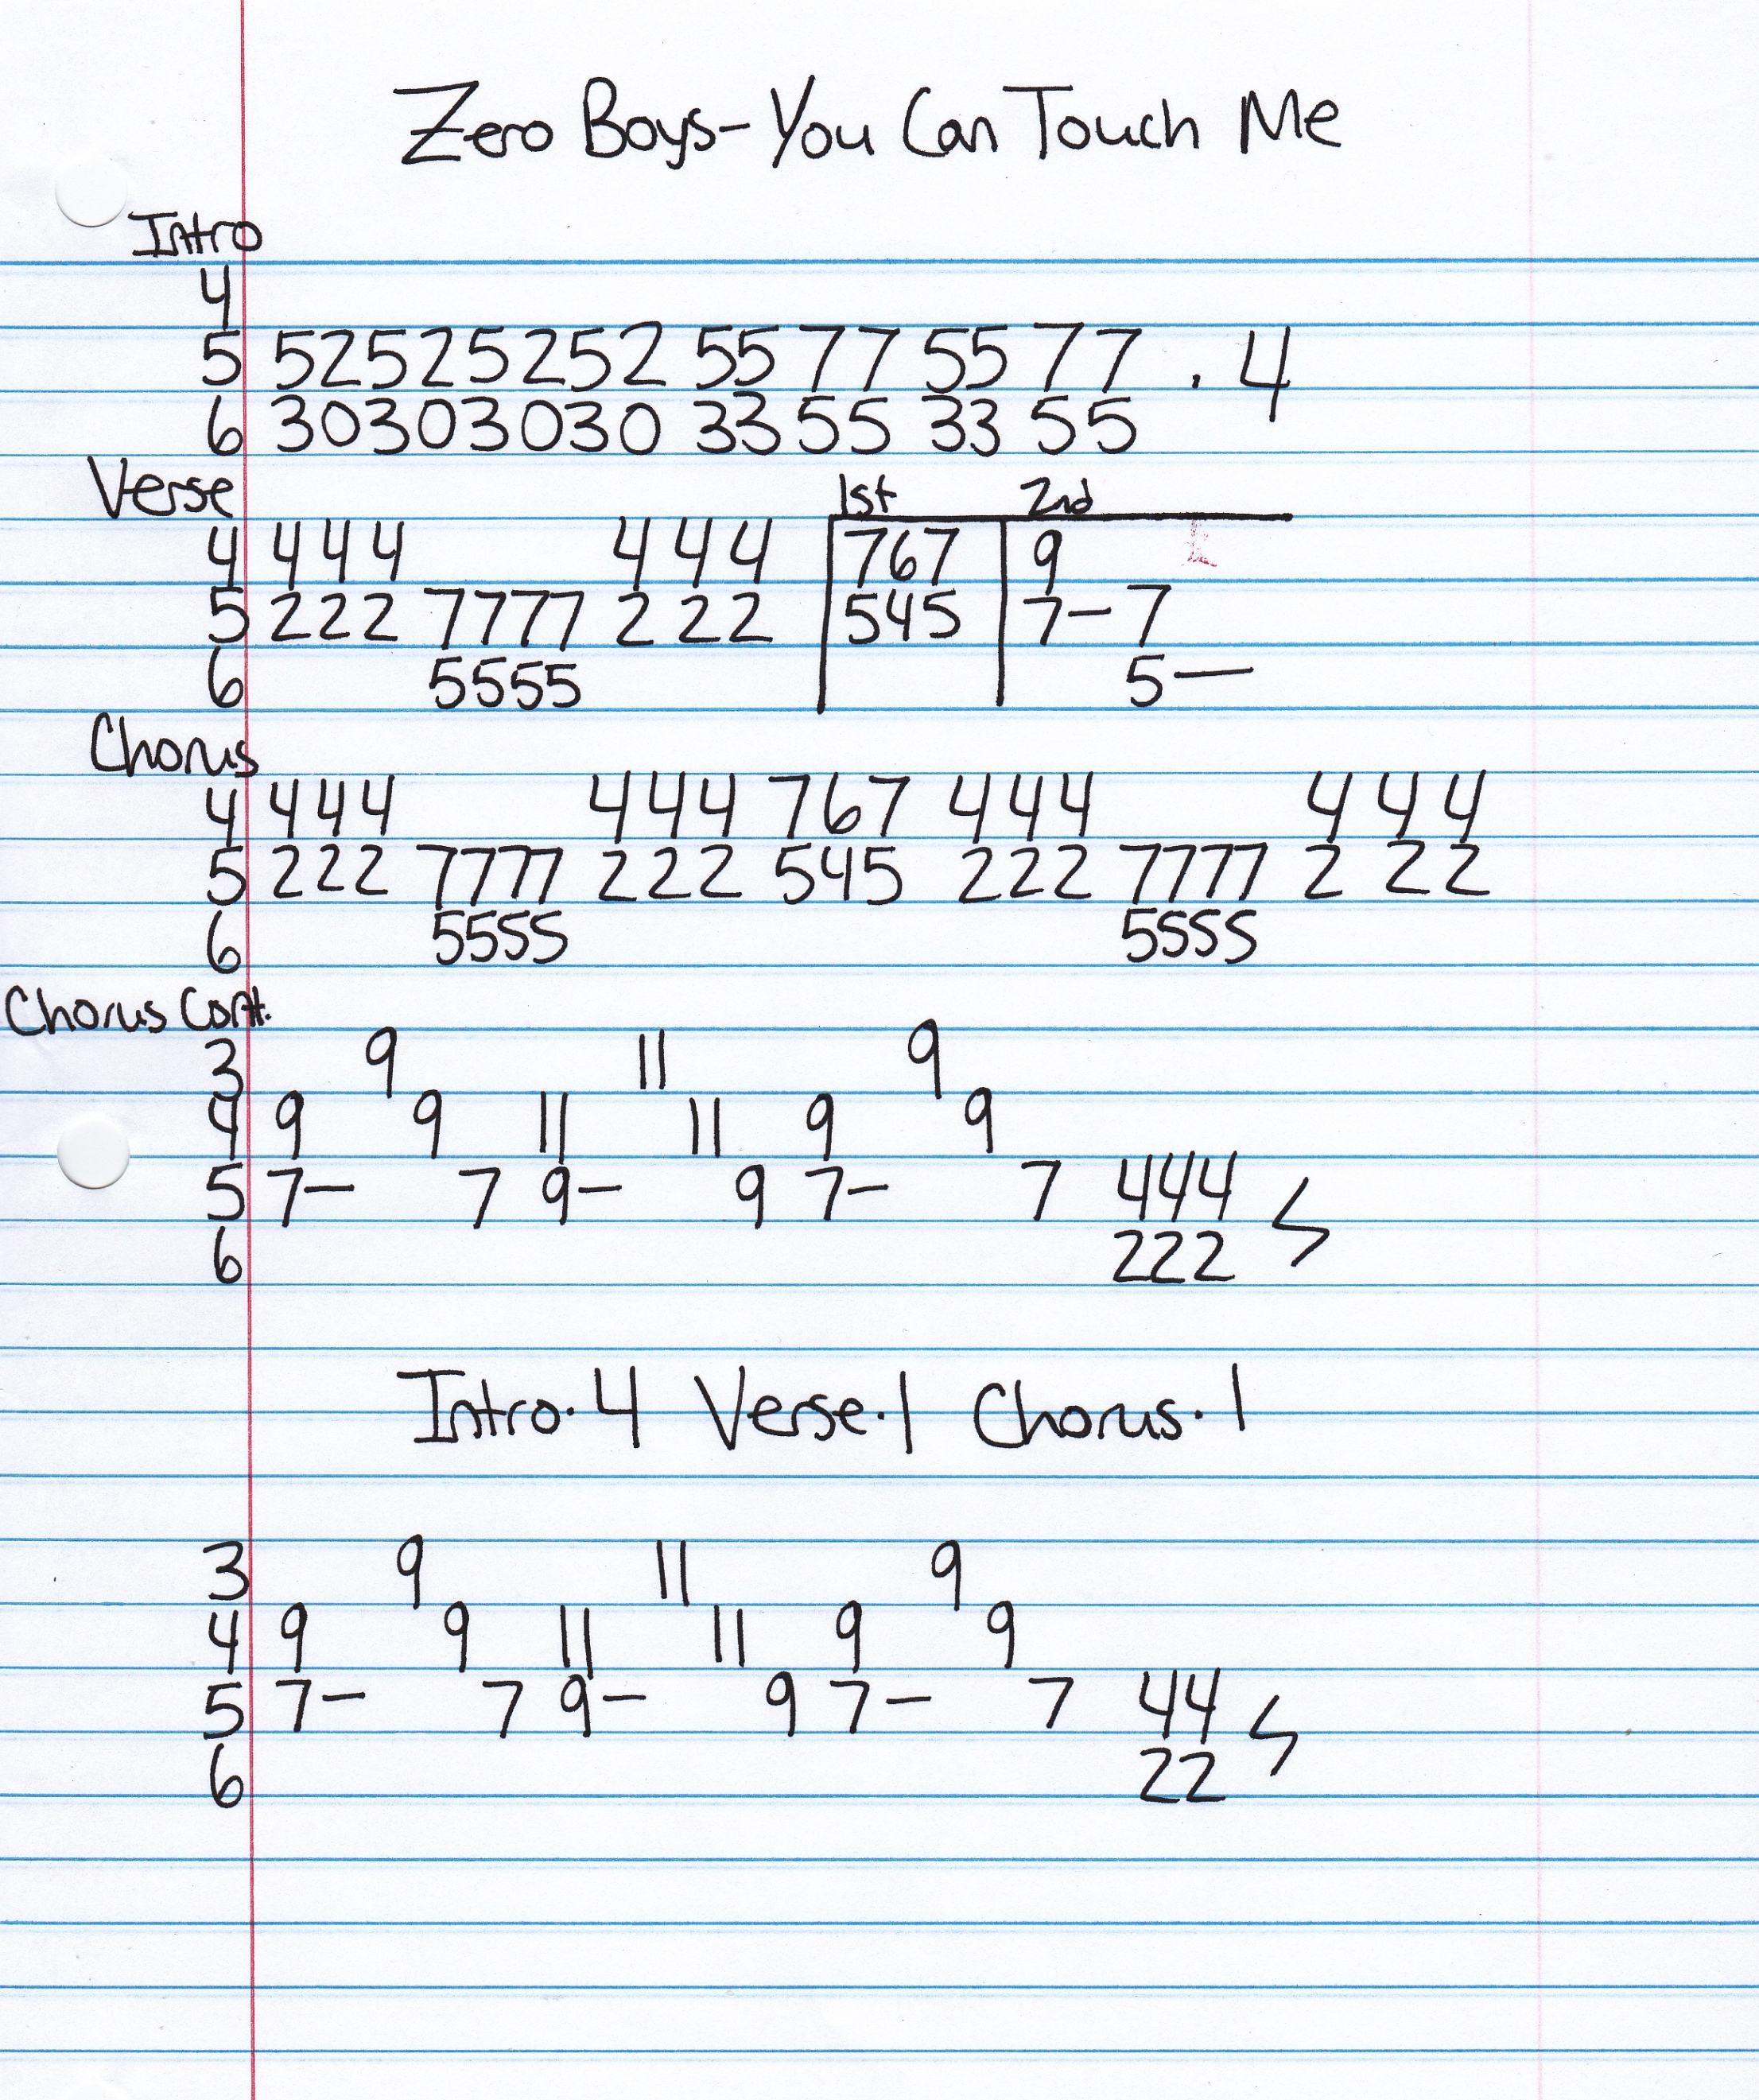 Zero Boys-You Can Touch Me
Intro
4
5 52525252 55 77 55 77 . 4
6 30303030 33 55 33 55
Verse 1st 2nd
4 444 444 767 9
5 222 7777 222 545 7-7
6 5555 5-
Chorus
4 444 444 767 444 444
5 222 7777 222 545 222 7777 222
6 5555 5555
Chorus Cont.
3 9 11 9
4 9 9 11 11 9 9
5 7- 7 9- 9 7- 7 444
6 222
Intro.4 Verse.1 Chorus.1
3 9 11 9
4 9 9 11 11 9 9
5 7- 7 9- 9 7- 7 44
6 22